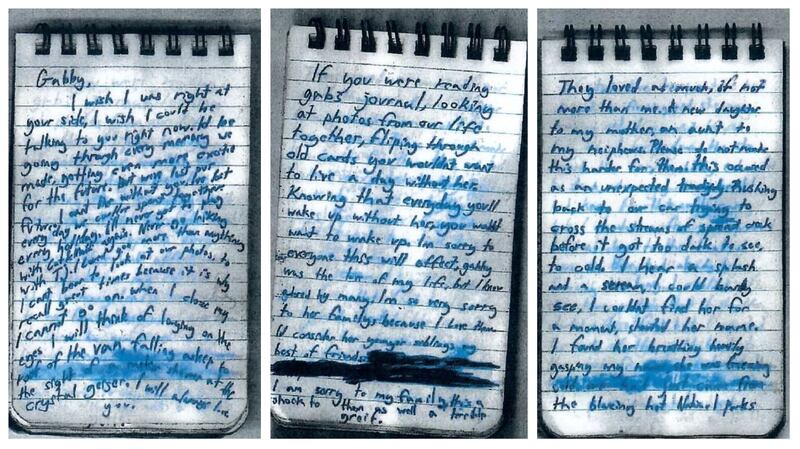 Gabby,
I wish I was right at
your side, I wish I could be
talking to you right now. I'd be
going through every memory we
made, getting even more excited
for the future. But we've lost our
future. I can't live without you. I've lost
every day we could've spent together
every holiday. I'll never get to play
with again. Never go hiking
with TJ. I loved you more than anything
I can't bear to look at our photos, to
recall great times because it is why
I cannot go on. When I close my
eyes I will think of laughing on the
roof of the van, falling asleep to
the sight of at the
crystal geiser. I will always love
you.
If you were reading
gabs journal, looking
at photos from our life
together, fliping through
old cards you wouldnt want
to live a day without her.
Knowing that everyday you'll
wake up without her, you wouldnt
want to wake up. I'm sorry to
everyone this will affect, gabby
was the love of my life, but I know
adored by many. I'm so very sorry
to her family because I love them
I'd consider her younger siblings my
best of friends
I am sorry to my family, this is a
shock to them as well a terrible
greif.
They loved as much, if not
more than me. A new daughter
to my mother, an aunt to
my neiphews. Please do not make
this harder for them, this occured
as an unexpected tradgedy. Rushing
back to our car trying to
cross the streams of spread creek
before it got too dark to see,
to cold. I hear a splash
and a scream. I could barely
see, I couldnt find her for
a moment, shouted her name.
I found her breathing heavily
gasping my name, she was freezing
from
the blazing hot National Parks